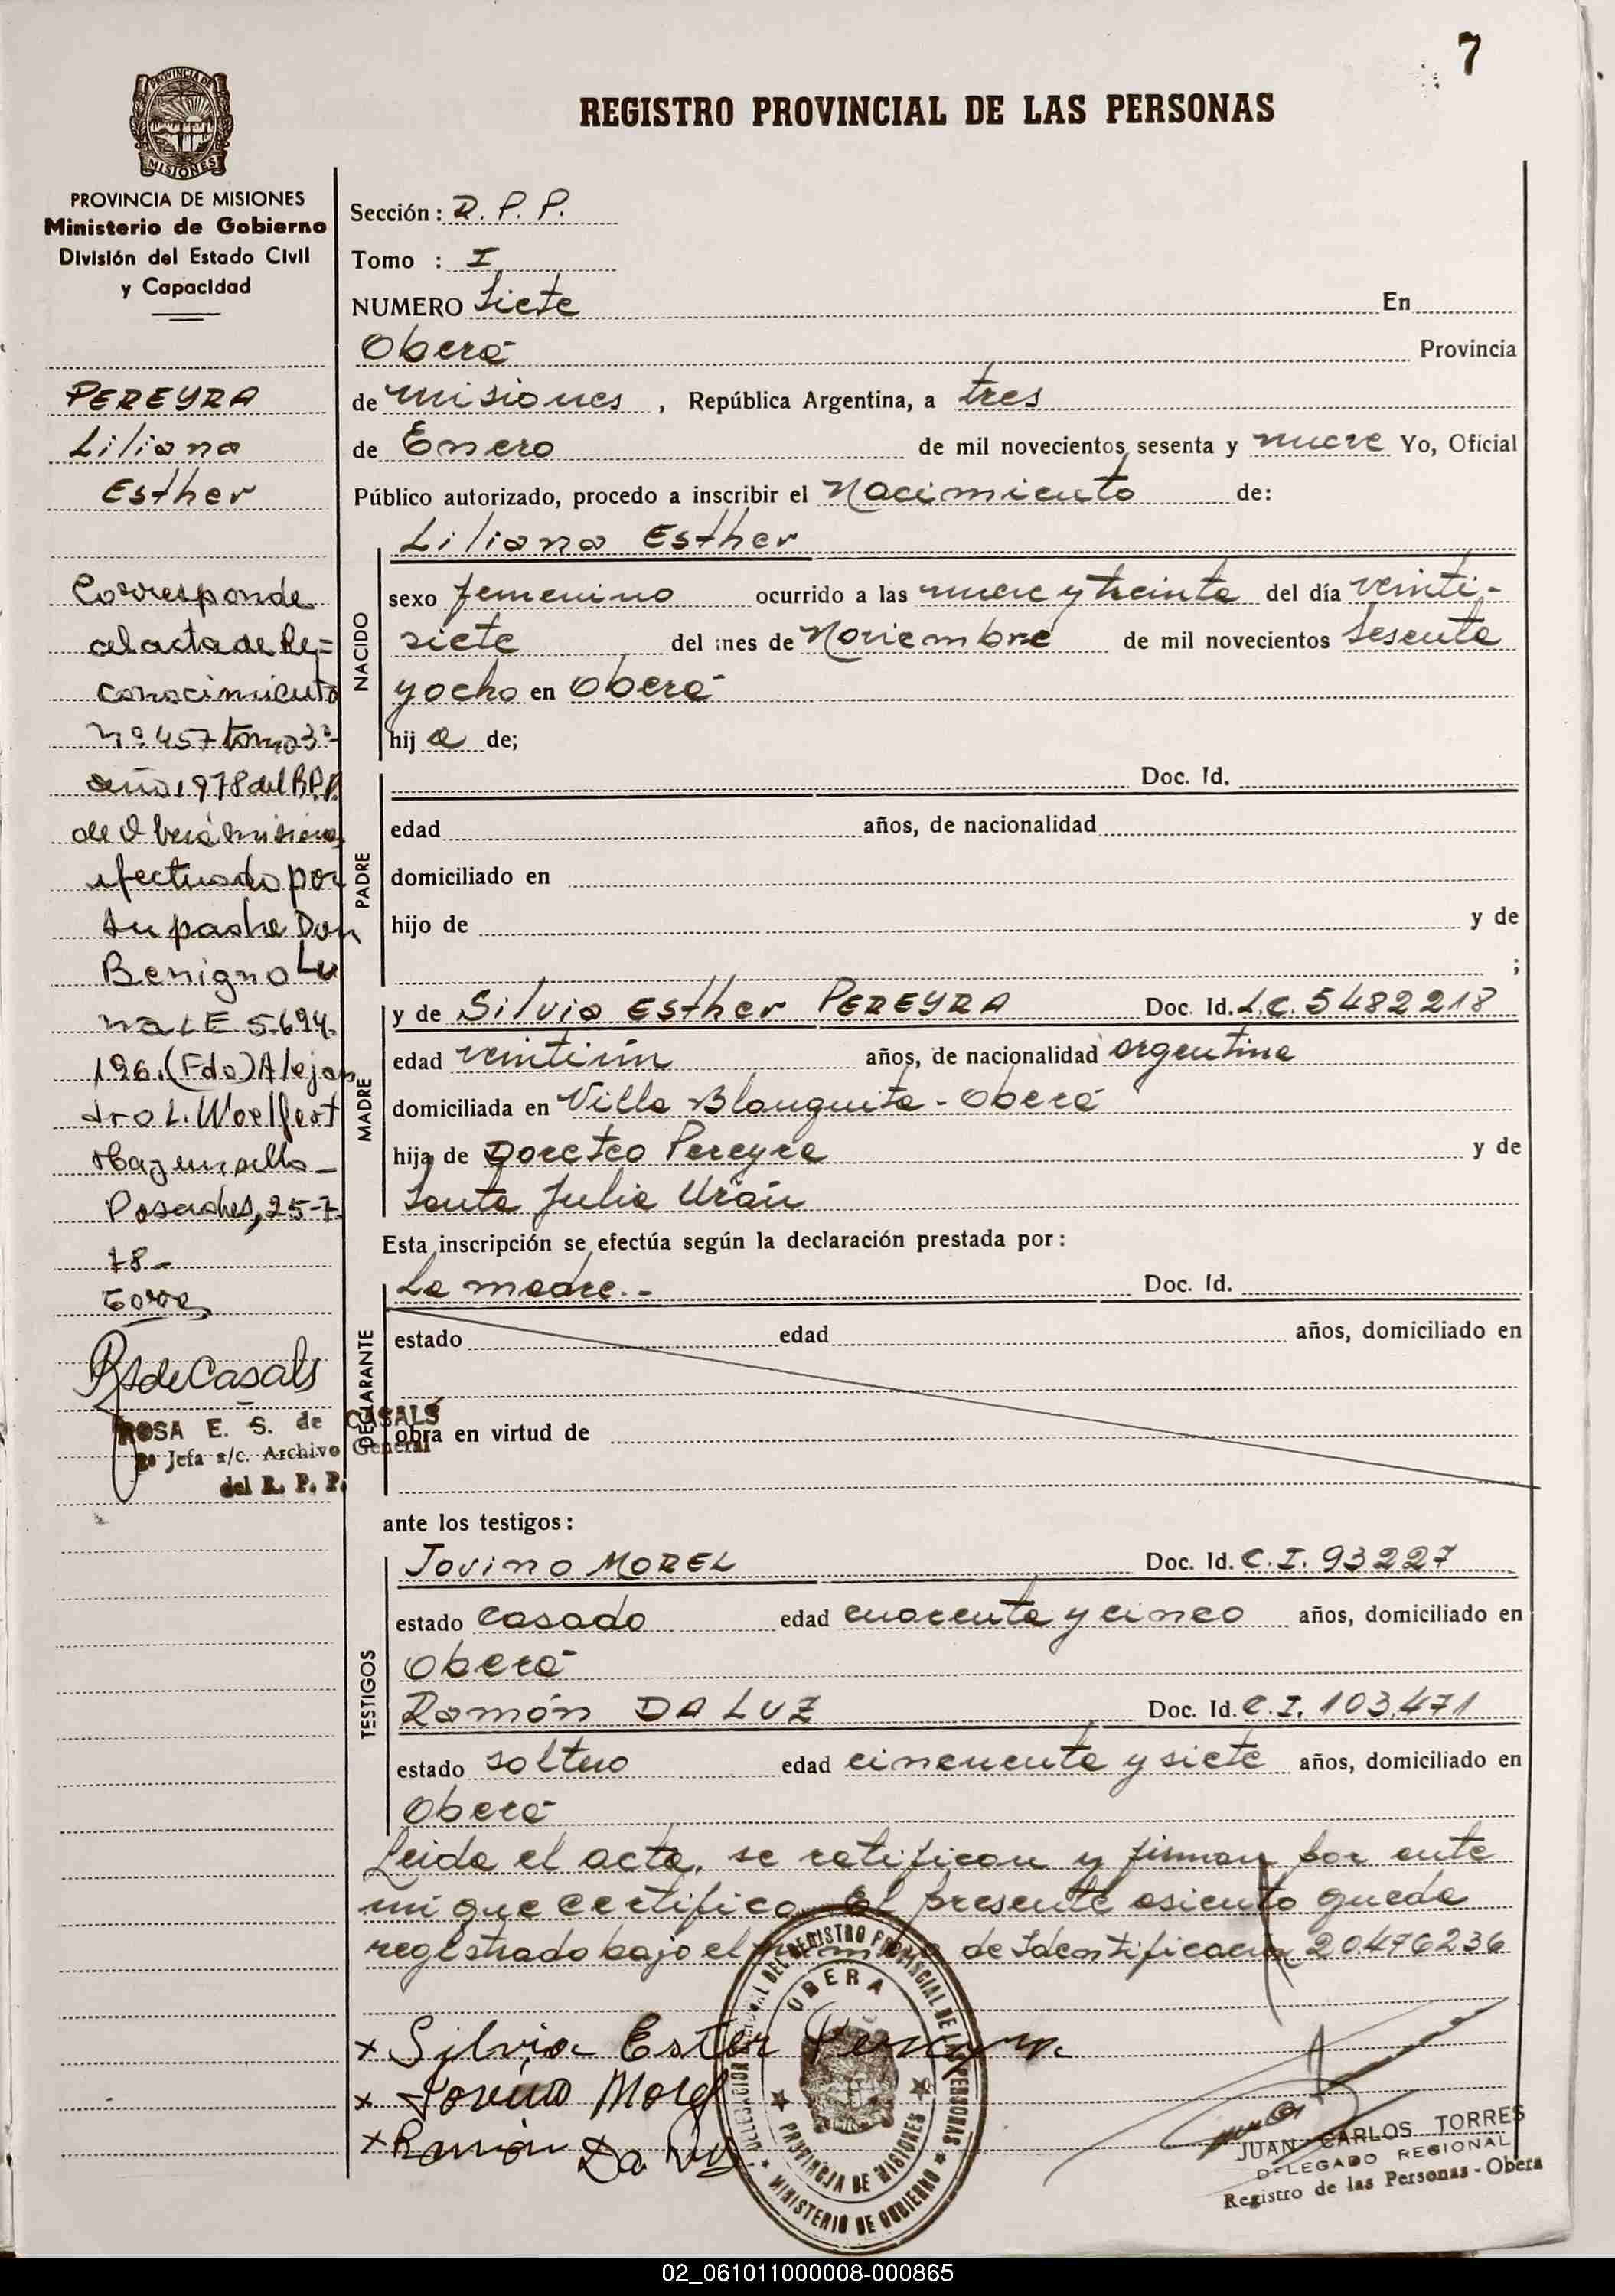 7
REGISTRO PROVINCIAL DE LAS PERSONAS
PROVINCIA DE
MISIONES
PROVINCIA DE MISIONES
Ministerio de Gobierno
División del Estado Civil
y Capacidad
PEREYRA
Liliana
Esther
Corresponde
al acta de Re=
conocimiento
nº 457 tomo 3º
año 1978 del R.P.P.
de Oberá Misiones
efectuado por
su padre Don
Benigno Lu
na LE 5.694.
196. (Fdo) Alejan
dro L. Woelfert
Hay un sello_
Posadas, 25-7-
78-
RS de Casals
ROSA E. S. de CASALS
2ª Jefa a/c. Archivo General
del R. P. P.
Sección: R. P. P.
Tomo : I
NUMERO Siete En
Oberá Provincia
de Misiones, República Argentina, a tres
de Enero de mil novecientos sesenta y nueve Yo, Oficial
Público autorizado, procedo a inscribir el Nacimiento de:
NACIDO
Liliana Esther
sexo femenino ocurrido a las nueve y treinta del día veinti-
siete del mes de Noviembre de mil novecientos sesenta
y ocho en Oberá
hij a de;
PADRE
Doc. Id.
edad años, de nacionalidad
domiciliado en
hijo de y de
;
MADRE
y de Silvia Esther PEREYRA Doc. Id. L.C. 5482218
edad veintiún años, de nacionalidad argentina
domiciliada en Villa Blanquita - Oberá
hija de Doroteo Pereyra y de
Santa Julia Uran
Esta inscripción se efectúa según la declaración prestada por:
DECLARANTE
La madre.- Doc. Id.
estado edad años, domiciliado en
obra en virtud de
ante los testigos:
TESTIGOS
Jovino MOREL Doc. Id. C.I. 93227
estado casado edad cuarenta y cinco años, domiciliado en
Oberá
Ramón DA LUZ Doc. Id. C.I. 103.471
estado soltero edad cincuenta y siete años, domiciliado en
Oberá
Leida el acta, se ratifican y firman por ante
mi que certifico. El presente asiento queda
registrado bajo el número de Identificación 20476236
x Silvia Ester Pereyra
x Jovino Morel
x Ramón Da Luz
DELEGACION REGIONAL DEL REGISTRO PROVINCIAL DE LAS PERSONAS
OBERA
PROVINCIA DE MISIONES
MINISTERIO DE GOBIERNO
JUAN CARLOS TORRES
DELEGADO REGIONAL
Registro de las Personas - Obera
02_061011000008-000865